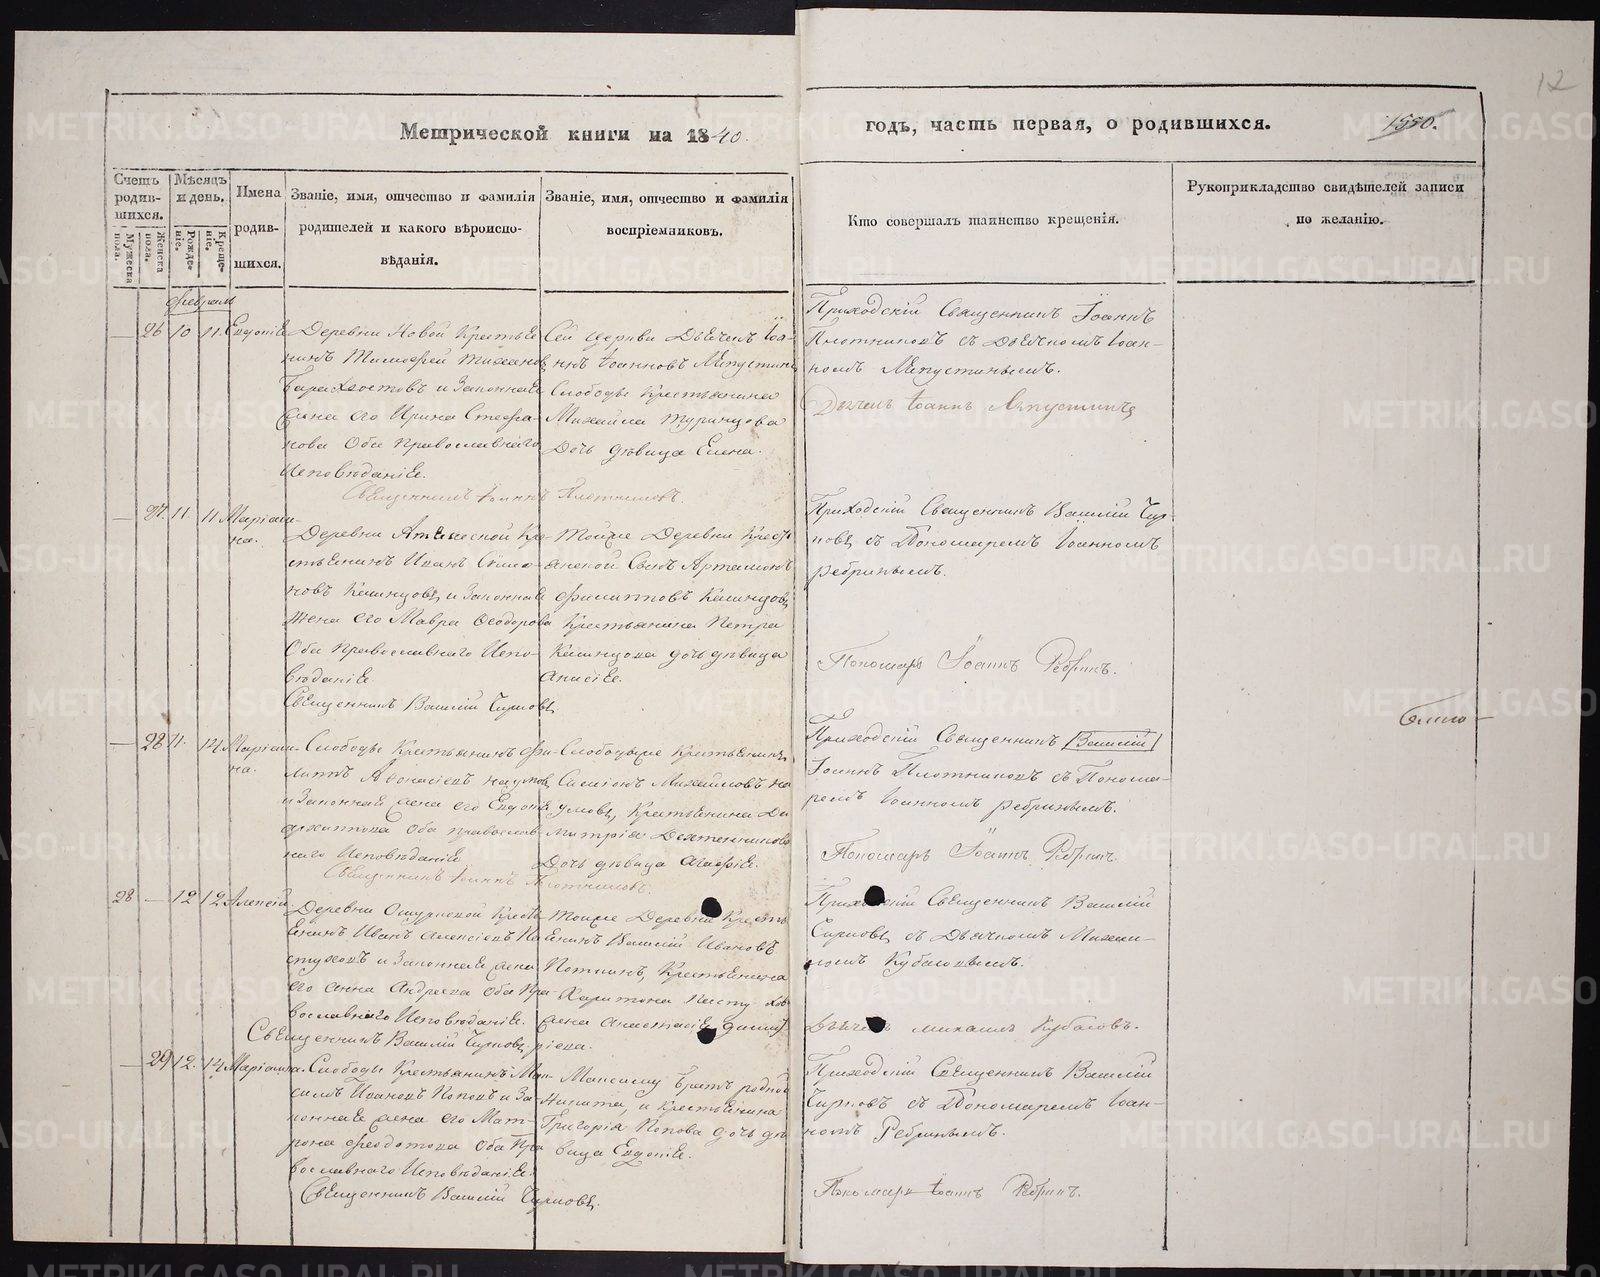 12
Метрической книги на 1840.
годъ, часть первая, о родившихся.
1550.
Счетъ родившихся.
Мужеска пола.
Женска пола.
Мѣсяцъ и день.
Рожденіе.
Крещеніе.
Имена родившихся.
Званіе, имя, отчество и фамилія
родителей и какого вѣроиспо-
вѣданія.
Званіе, имя, отчество и фамилія
воспріемниковъ.
Кто совершалъ таинство крещенія.
Рукоприкладство свидѣтелей записи
по желанію.
февраль
26 10 11 Евдокіѣ
Деревни Новой Крестьѣ
нинъ Тимофей
и Законнаѣ
жена его Ирина Стефа-
нова Оба православнаго
Исповѣданіѣ.
Сей церкви Дьячекъ Іоа
ннъ Іоанновъ Лѣпустинъ
Слободы Крестьянина
Михайла Туринцова
Дочь дѣвица Елена.
Приходскій Священникъ Іоаннъ
Плотниковъ съ Дьячкомъ Іоан-
номъ Лѣпустинымъ.
Дьячекъ Іоаннъ Лѣпустинъ
Священникъ Іоаннъ Плотниковъ.
27. 11. 11 Маріам-
на.
Деревни Кре-
стьѣнинъ Иванъ
новъ Казанцовъ и Законнаѣ
Жена его Мавра Ѳеодорова
Оба православнаго Испо-
вѣданіѣ
Священникъ Василій Чирковъ
Тойже Деревни Крестъ
янской Сынъ Артамонъ
Филатовъ Казанцовъ
Крестьянина Петра
Казанцова дочь дѣвица
Анисіѣ.
Приходскій Священникъ Василій Чир-
ковъ съ Пономаремъ Іоанномъ
Ребринымъ.
Пономарь Іоаннъ Ребринъ.
28 11. 14 Маріам-
на.
Слободы Крестьянинъ Фи-
липъ Аѳанасіевъ Наумовъ
и Законнаѣ жена его Евдокіѣ
Архипова Оба православ-
наго Исповѣданіѣ
Священникъ Іоаннъ Плотниковъ.
Слободчие Крестьѣнинъ
Симіонъ Михайловъ На
умовъ, Крестьянина Ди
митріѣ
Дочь дѣвица Агафіѣ.
Приходскій Священникъ Василій
Іоаннъ Плотниковъ съ Понома-
ремъ Іоанномъ Ребринымъ.
Пономарь Іоаннъ Ребринъ.
28 12 12 Алексѣй
Деревни Ошурковой Кресть
ѣнинъ Иванъ Алексѣевъ Па
стуховъ и Законнаѣ жена
его Анна Андреева Оба Пра-
вославнаго Исповѣданіѣ.
Священникъ Василій Чирковъ
Тойже Деревни Кресть
ѣнинъ Василій Ивановъ
Поткинъ, Крестьѣнина
Харитона Пастухов
жена Анастасіѣ
ріева.
Приходскій Священникъ Василій
Чирковъ съ Дьячкомъ Михаи-
ломъ Кубасовымъ.
Дьячекъ Михаилъ Кубасовъ.
29 12. 14 Маріамна.
Слободы Крестьянинъ Мак-
симъ Ивановъ Поповъ и За-
коннаѣ жена его Мат-
рона Феодотова Оба Пра
вославнаго Исповѣданіѣ.
Священникъ Василій Чирковъ.
Максиму братъ родной
Никита, и Крестьѣнина
Григоріѣ Попова дочь дѣ
вица Евдокіѣ.
Приходскій Священникъ Василій
Чирковъ съ Пономаремъ Іоан-
номъ Ребринымъ.
Пономарь Іоаннъ Ребринъ.
METRIKI.GASO-URAL.RU